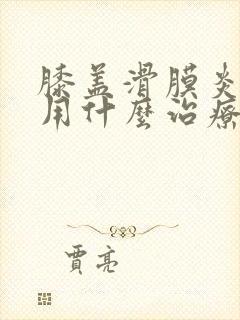 膝盖滑膜炎
用什麼治療
賈亮